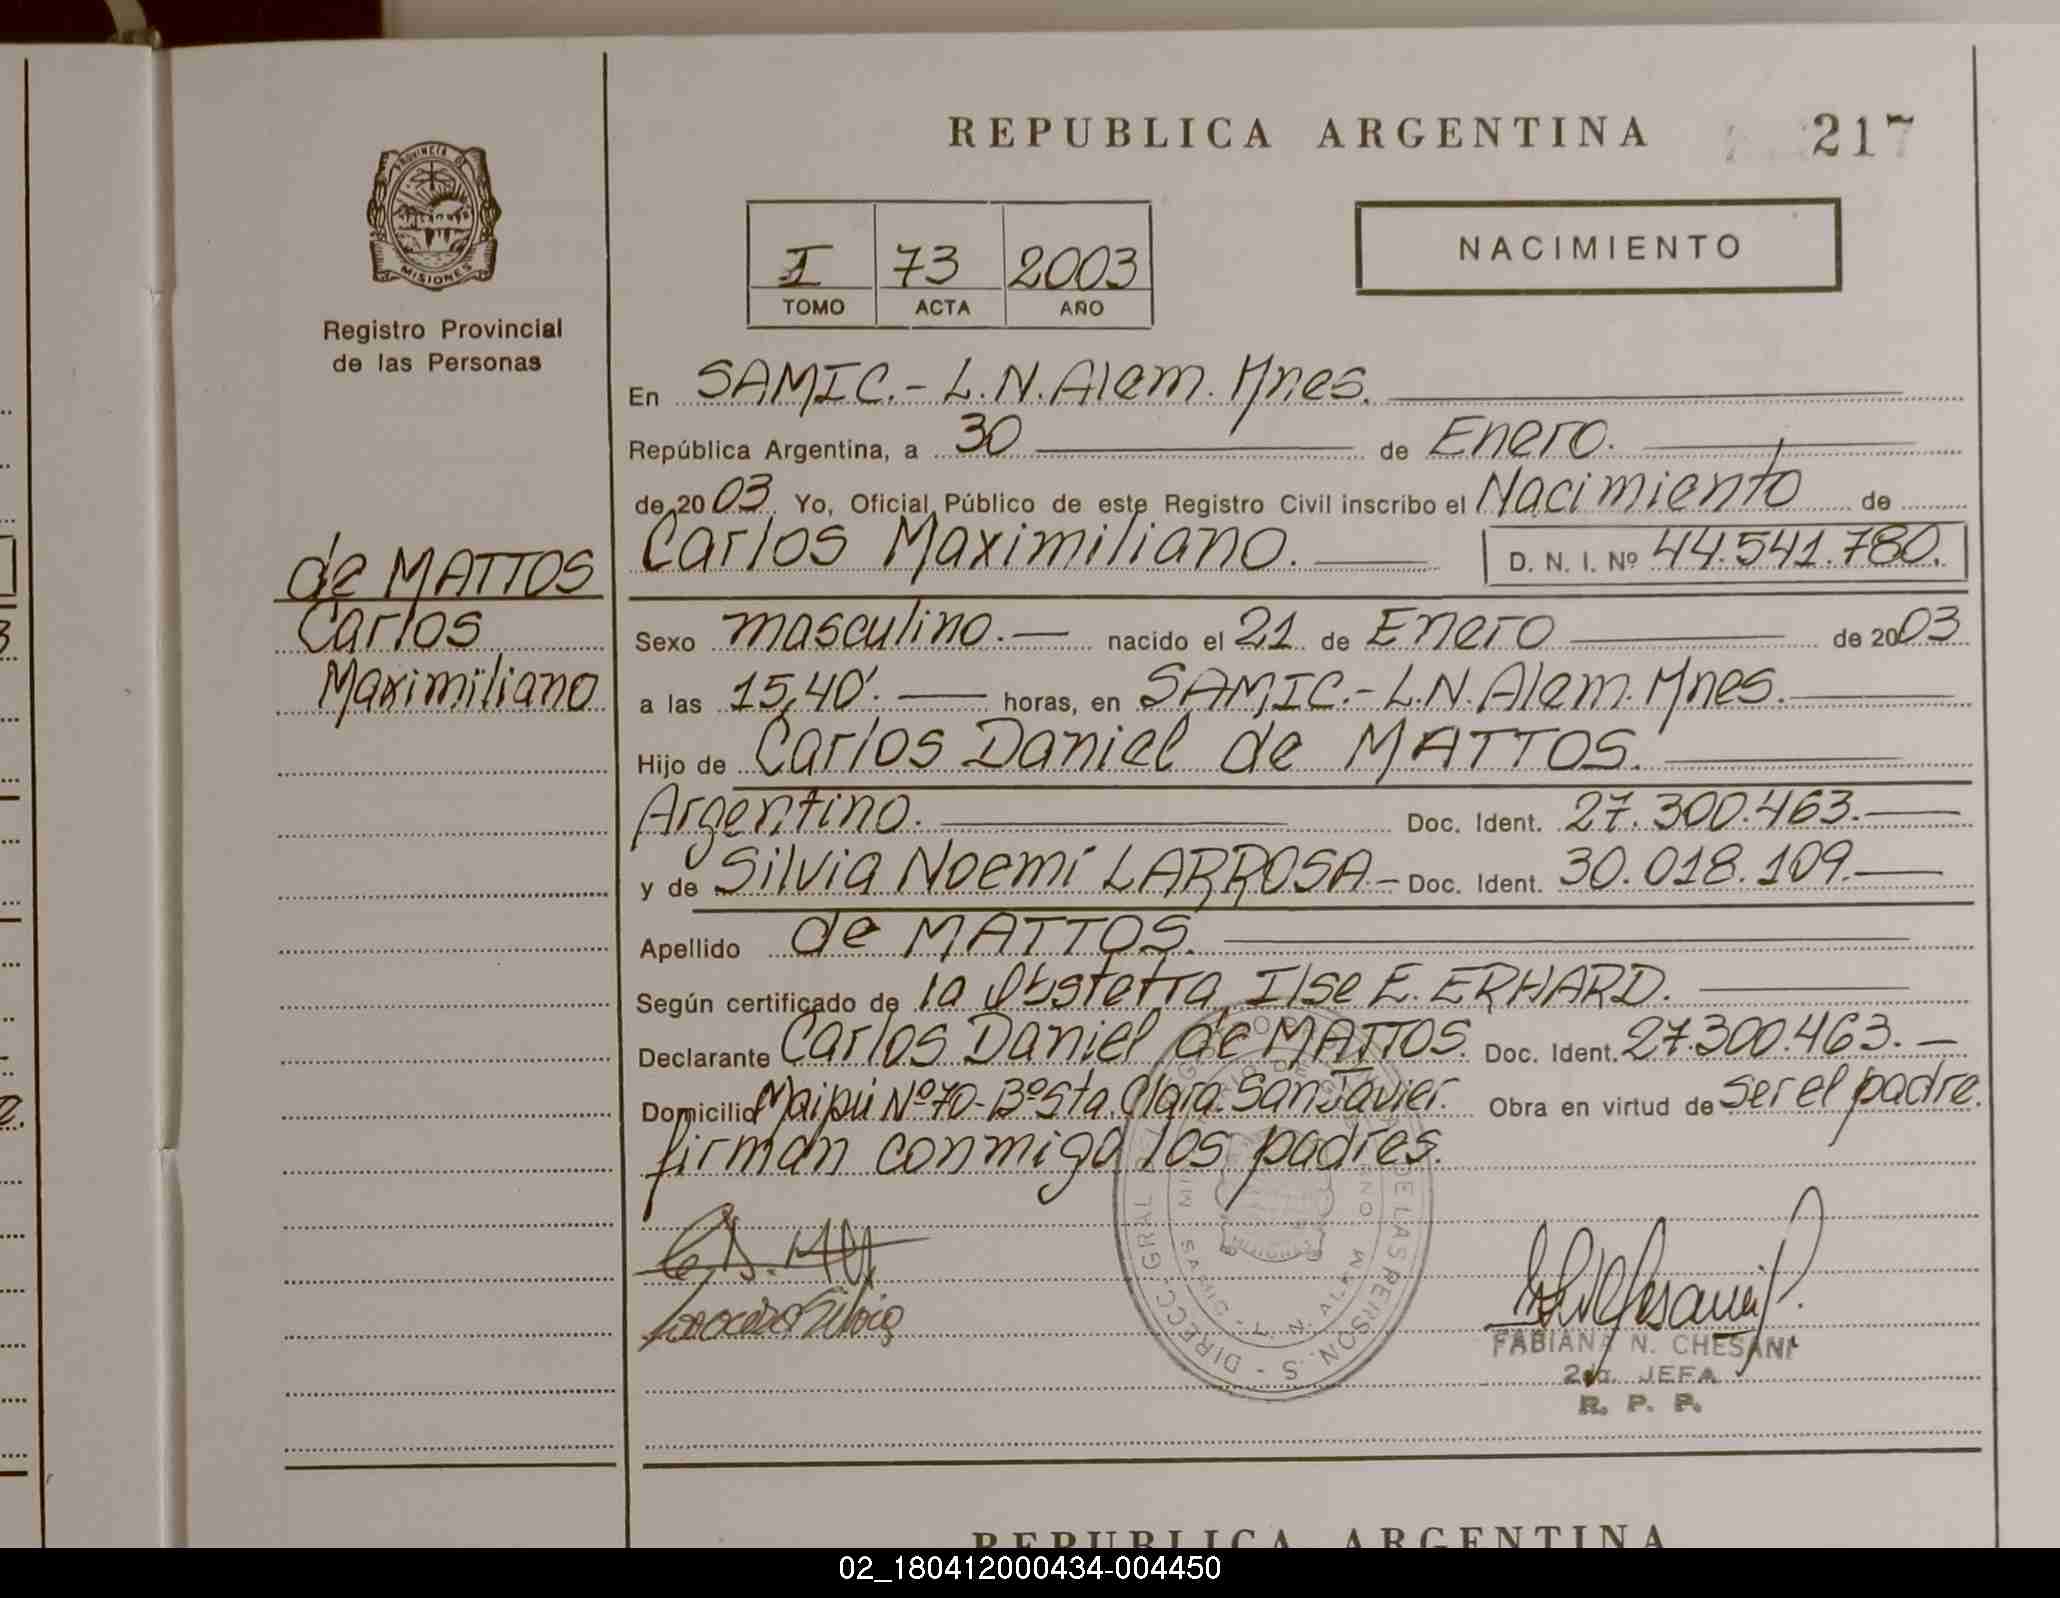 REPUBLICA ARGENTINA
217
PROVINCIA DE
MISIONES
Registro Provincial
de las Personas
I 73 2003
TOMO ACTA AÑO
NACIMIENTO
En SAMIC.- L.N. Alem. Mnes.
República Argentina, a 30 de Enero.
de 2003 Yo, Oficial Público de este Registro Civil inscribo el Nacimiento de
Carlos Maximiliano. D. N. I. Nº 44.541.780.
de MATTOS
Carlos
Maximiliano
Sexo masculino.- nacido el 21 de Enero de 2003
a las 15,40'. horas, en SAMIC.- L.N. Alem. Mnes.
Hijo de Carlos Daniel de MATTOS.
Argentino. Doc. Ident. 27.300.463.
y de Silvia Noemí LARROSA.- Doc. Ident. 30.018.109.
Apellido de MATTOS.
Según certificado de la Obstetra Ilse E. ERHARD.
Declarante Carlos Daniel de MATTOS. Doc. Ident. 27.300.463.-
Domicilio Maipú Nº 70- Bº Sta. Clara. San Javier. Obra en virtud de ser el padre.
firman conmigo los padres.
Silvia
DIRECC. GRAL DE LAS PERSON.S.
SAMIC - L. N. ALEM
FABIANA N. CHESANI
2da. JEFA
R. P. P.
REPUBLICA ARGENTINA
02_180412000434-004450